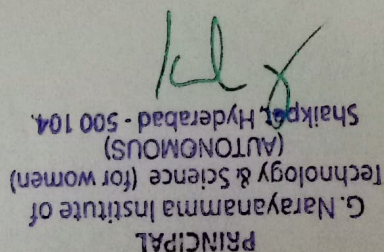 PRINCIPAL
G. Narayanamma Institute of
Technology & Science (for women)
(AUTONOMOUS)
Shaikpet, Hyderabad - 500 104.